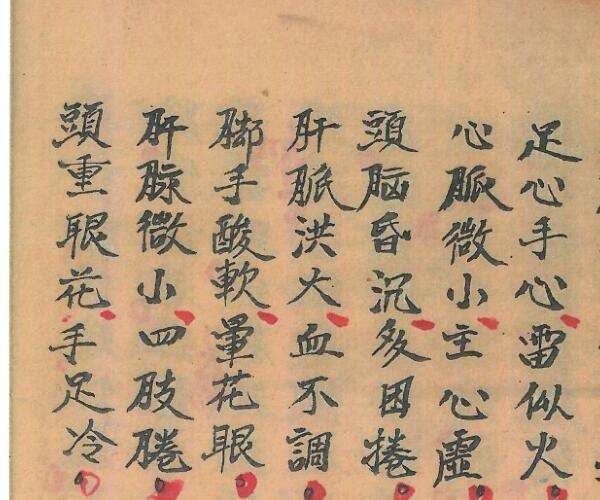 足心手心雷似火。
心脈微小主心虛。
頭脑昏沉多困捲。
肝脈洪大血不調。
脚手酸軟暈花眼。
肝脉微小四肢腃。
頭重眼花手足冷。